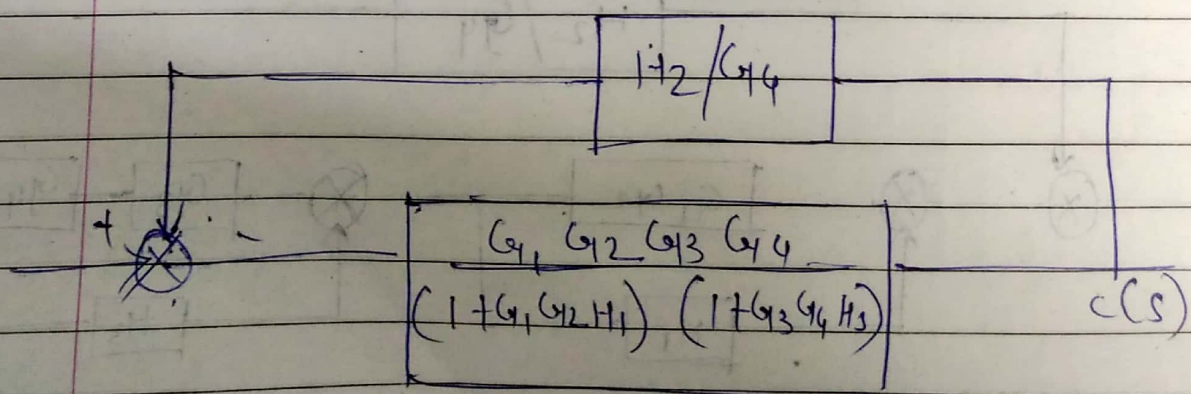 H2/G4
+ -
G1 G2 G3 G4
(1+G1G2H1) (1+G3G4H3)
C(S)